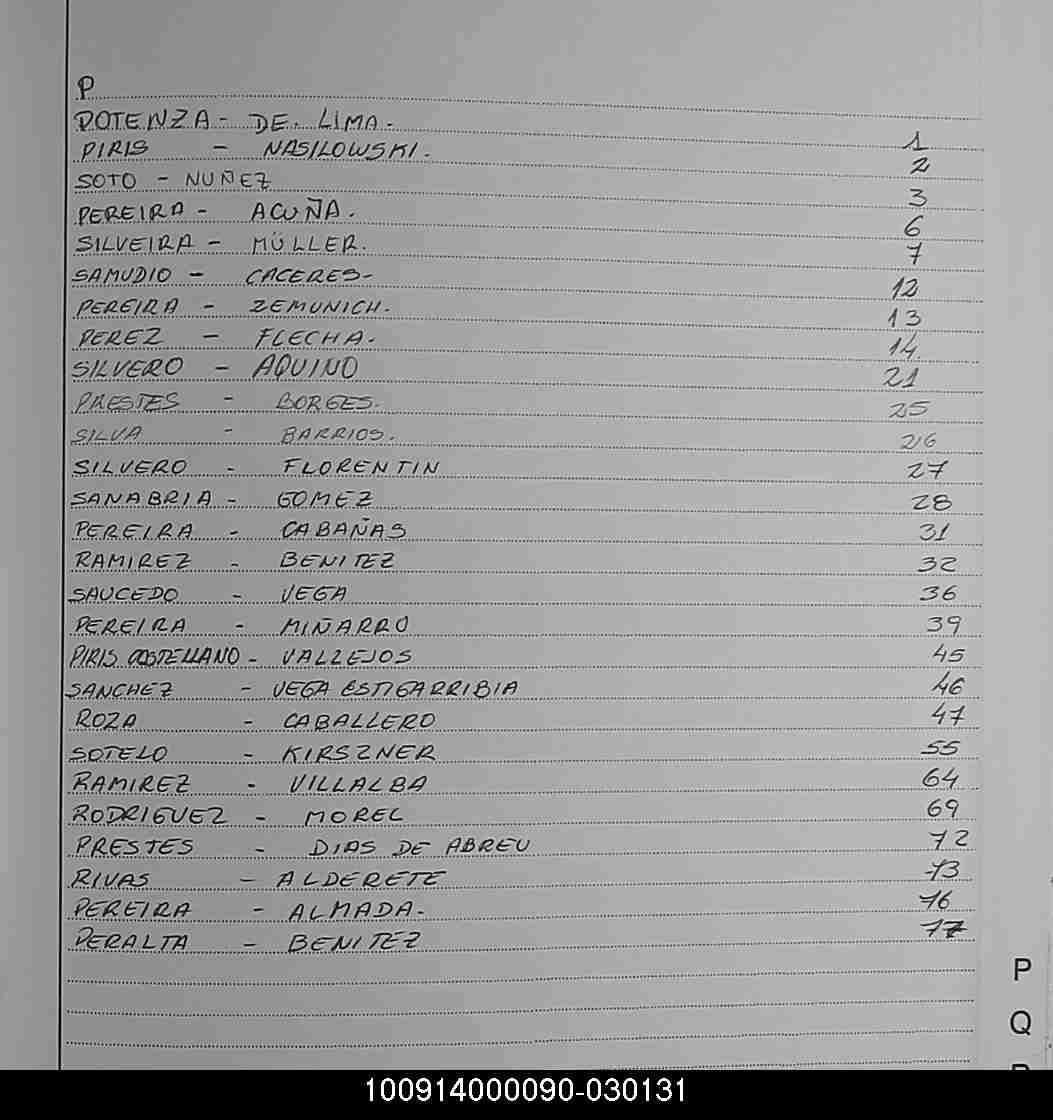 P
POTENZA - DE. LIMA. 1
PIRIS - NASILOWSKI. 2
SOTO - NUÑEZ 3
PEREIRA - ACUÑA. 6
SILVEIRA - MÜLLER. 7
SAMUDIO - CACERES- 12
PEREIRA - ZEMUNICH. 13
PEREZ - FLECHA. 14
SILVERO - AQUINO 21
PRESTES - BORGES. 25
SILVA - BARRIOS. 26
SILVERO - FLORENTIN 27
SANABRIA - GOMEZ 28
PEREIRA - CABAÑAS 31
RAMIREZ - BENITEZ 32
SAUCEDO - VEGA 36
PEREIRA - MIÑARRO 39
PIRIS COSTELLANO - VALLEJOS 45
SANCHEZ - VEGA ESTIGARRIBIA 46
ROZA - CABALLERO 47
SOTELO - KIRSZNER 55
RAMIREZ - VILLALBA 64
RODRIGUEZ - MOREL 69
PRESTES - DIAS DE ABREU 72
RIVAS - ALDERETE 73
PEREIRA - ALMADA. 76
PERALTA - BENITEZ 77
P
Q
100914000090-030131